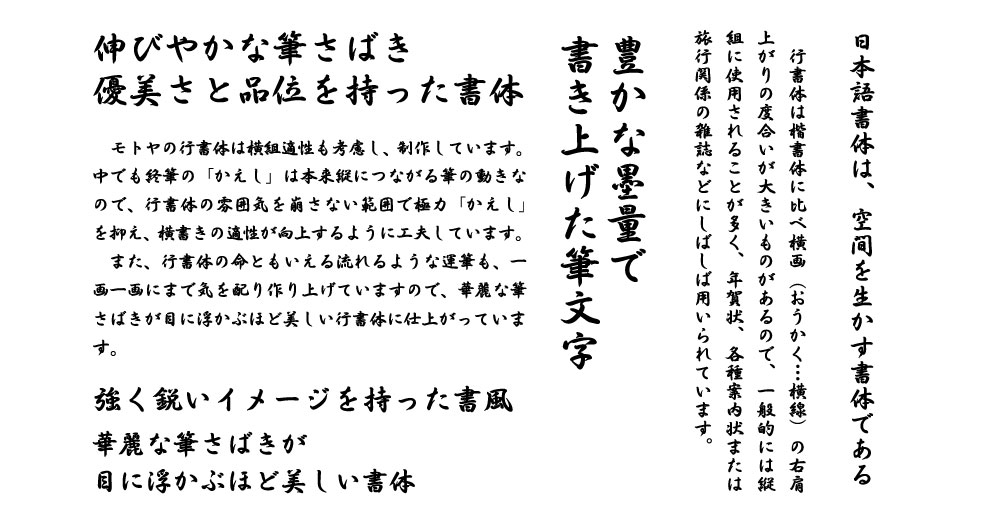 伸びやかな筆さばき
優美さと品位を持った書体
モトヤの行書体は横組適性も考慮し、制作しています。
中でも終筆の「かえし」は本来縦につながる筆の動きな
ので、行書体の雰囲気を崩さない範囲で極力「かえし」
を抑え、横書きの適性が向上するように工夫しています。
また、行書体の命ともいえる流れるような運筆も、一
画一画にまで気を配り作り上げていますので、華麗な筆
さばきが目に浮かぶほど美しい行書体に仕上がっていま
す。
強く鋭いイメージを持った書風
華麗な筆さばきが
目に浮かぶほど美しい書体
豊かな墨量で
書き上げた筆文字
日本語書体は、空間を生かす書体である
行書体は楷書体に比べ横画（おうかく…横線）の右肩
上がりの度合いが大きいものがあるので、一般的には縦
組に使用されることが多く、年賀状、各種案内状または
旅行関係の雑誌などにしばしば用いられています。